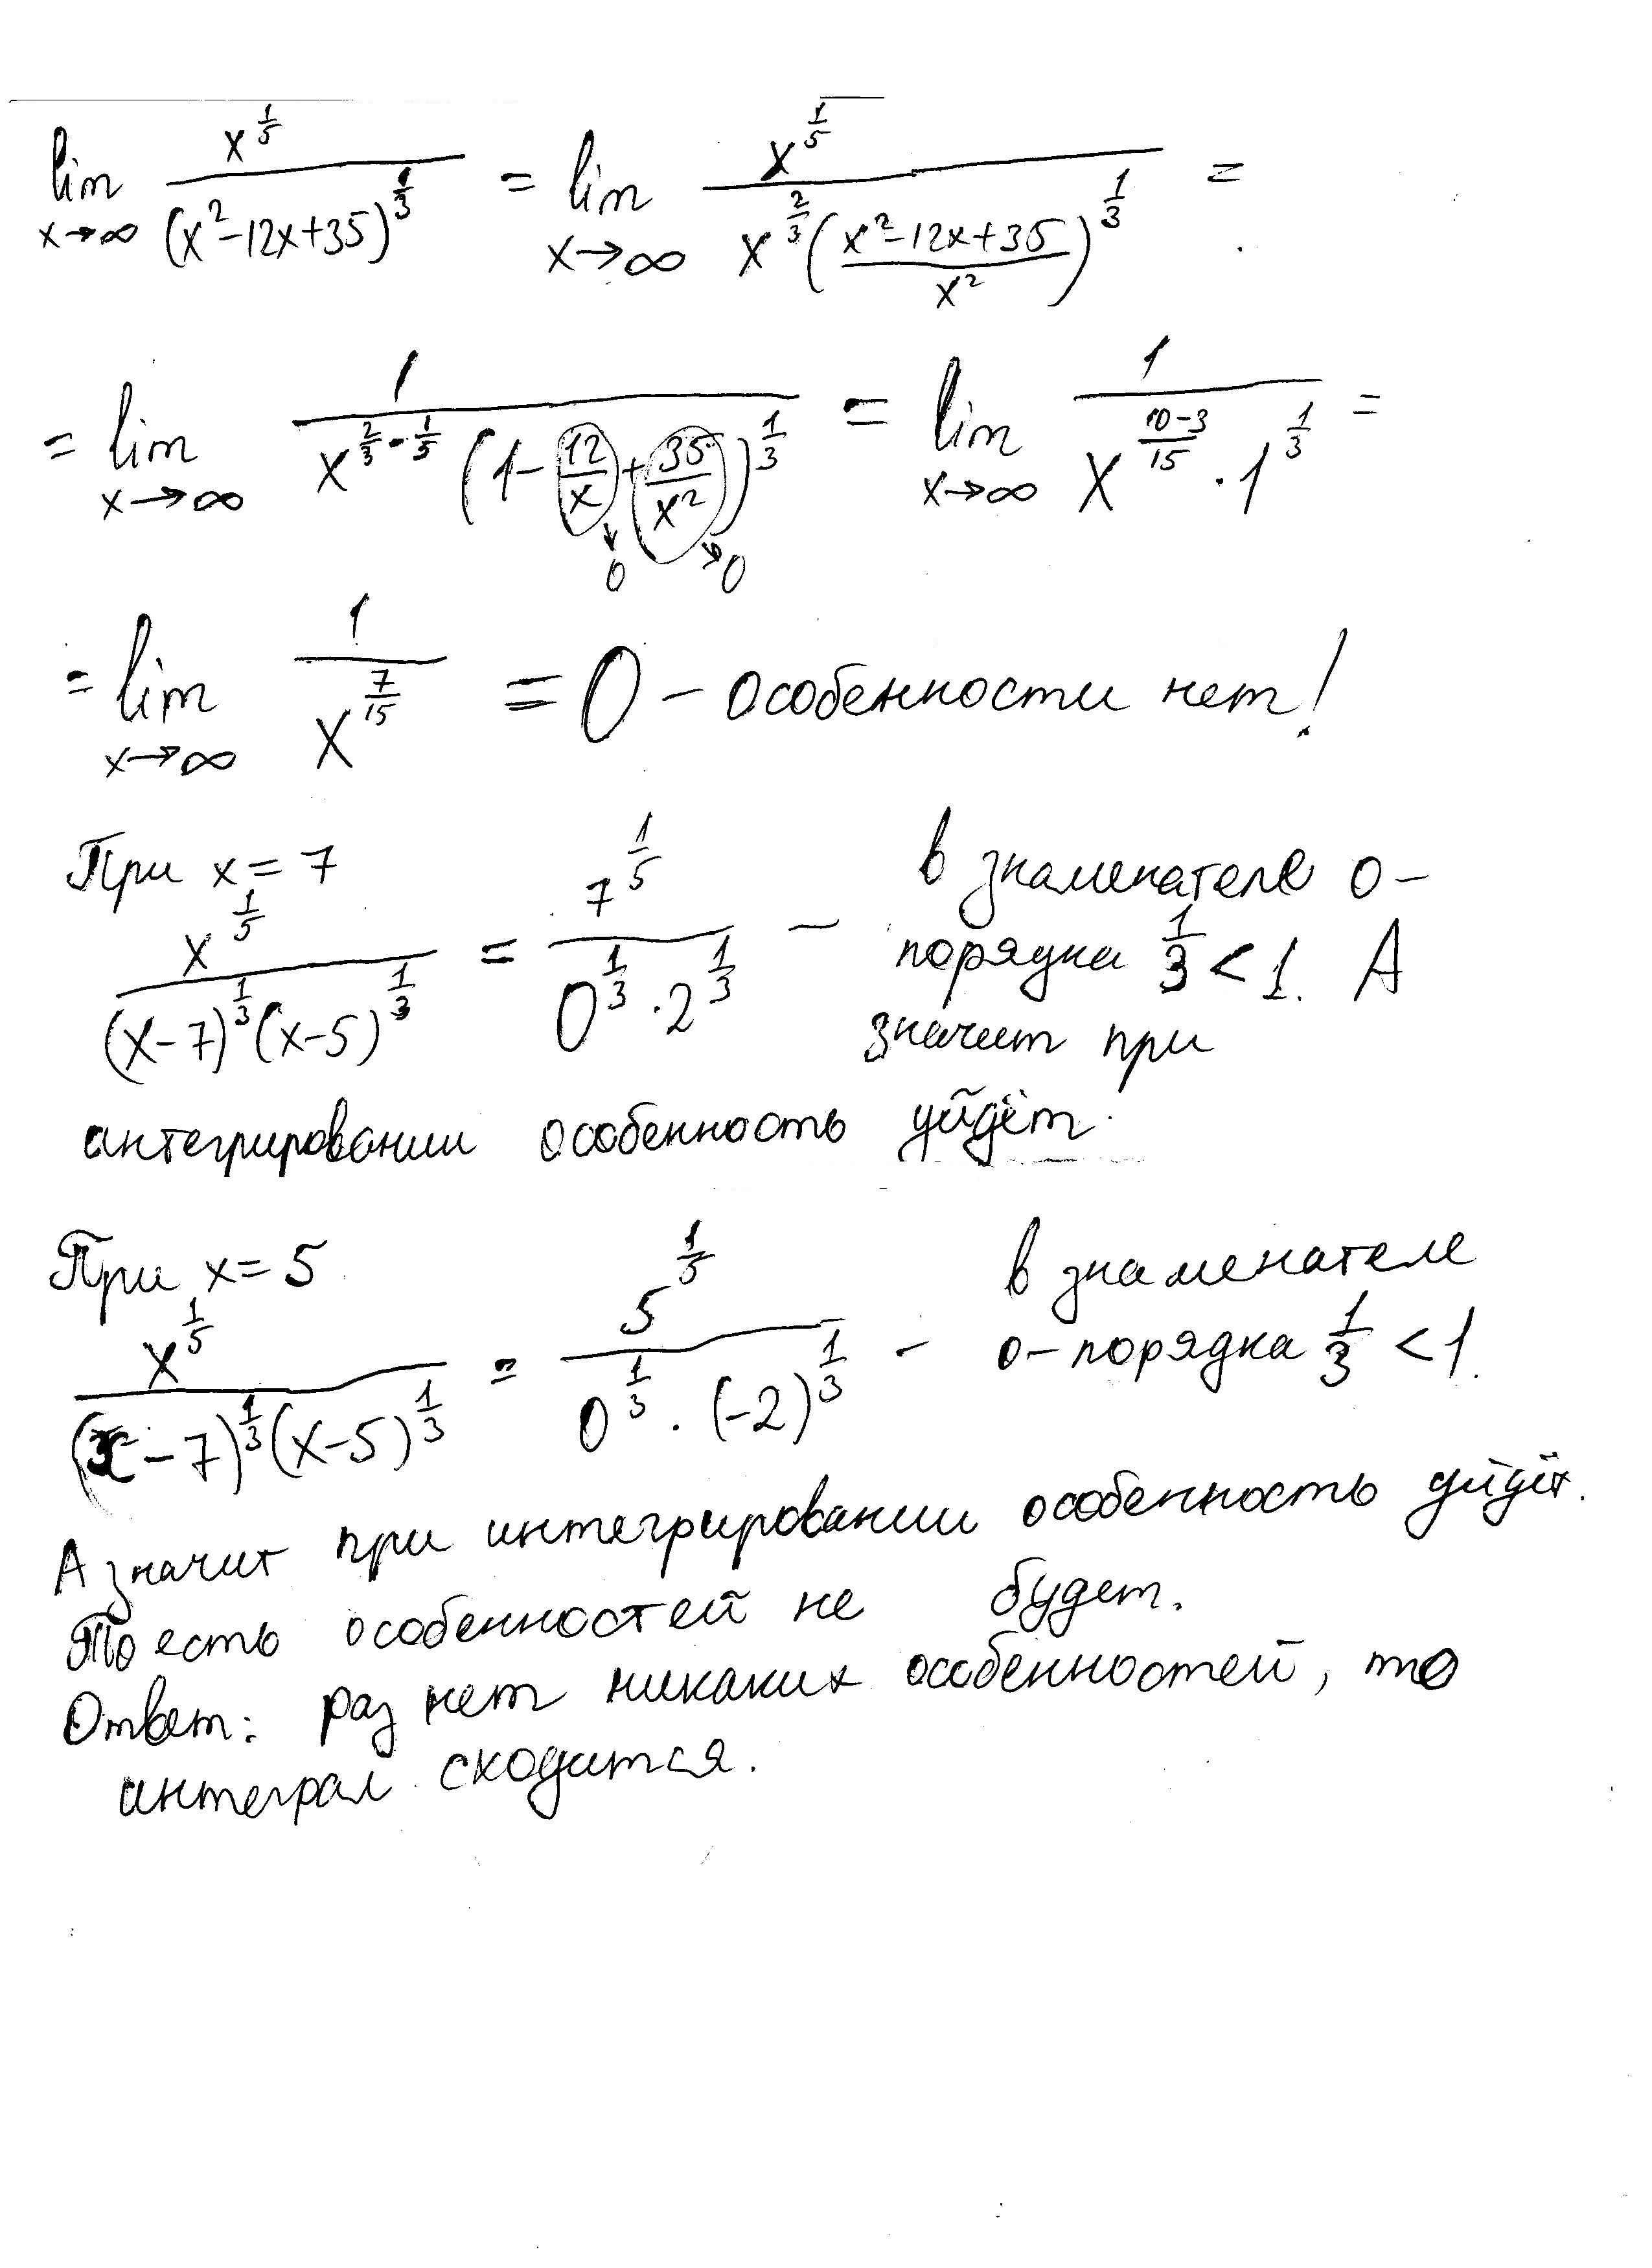 lim x→∞ x^(1/5) / (x²-12x+35)^(1/3) = lim x→∞ x^(1/5) / (x^(2/3) ((x²-12x+35)/x²)^(1/3)) =
= lim x→∞ 1 / (x^(2/3 - 1/5) (1 - 12/x + 35/x²)^(1/3)) = lim x→∞ 1 / (x^((10-3)/15) · 1^(1/3)) =
↓0 ↘0
= lim x→∞ 1 / x^(7/15) = 0 – особенности нет!
При x = 7
x^(1/5) / ((x-7)^(1/3) (x-5)^(1/3)) = 7^(1/5) / (0^(1/3) · 2^(1/3)) –
в знаменателе 0 –
порядка 1/3 < 1. А
значит при
интегрировании особенность уйдёт.
При x = 5
x^(1/5) / ((x-7)^(1/3) (x-5)^(1/3)) = 5^(1/5) / (0^(1/3) · (-2)^(1/3)) –
в знаменателе
0 – порядка 1/3 < 1.
А значит при интегрировании особенность уйдёт.
То есть особенностей не будет.
Ответ: раз нет никаких особенностей, то
интеграл сходится.